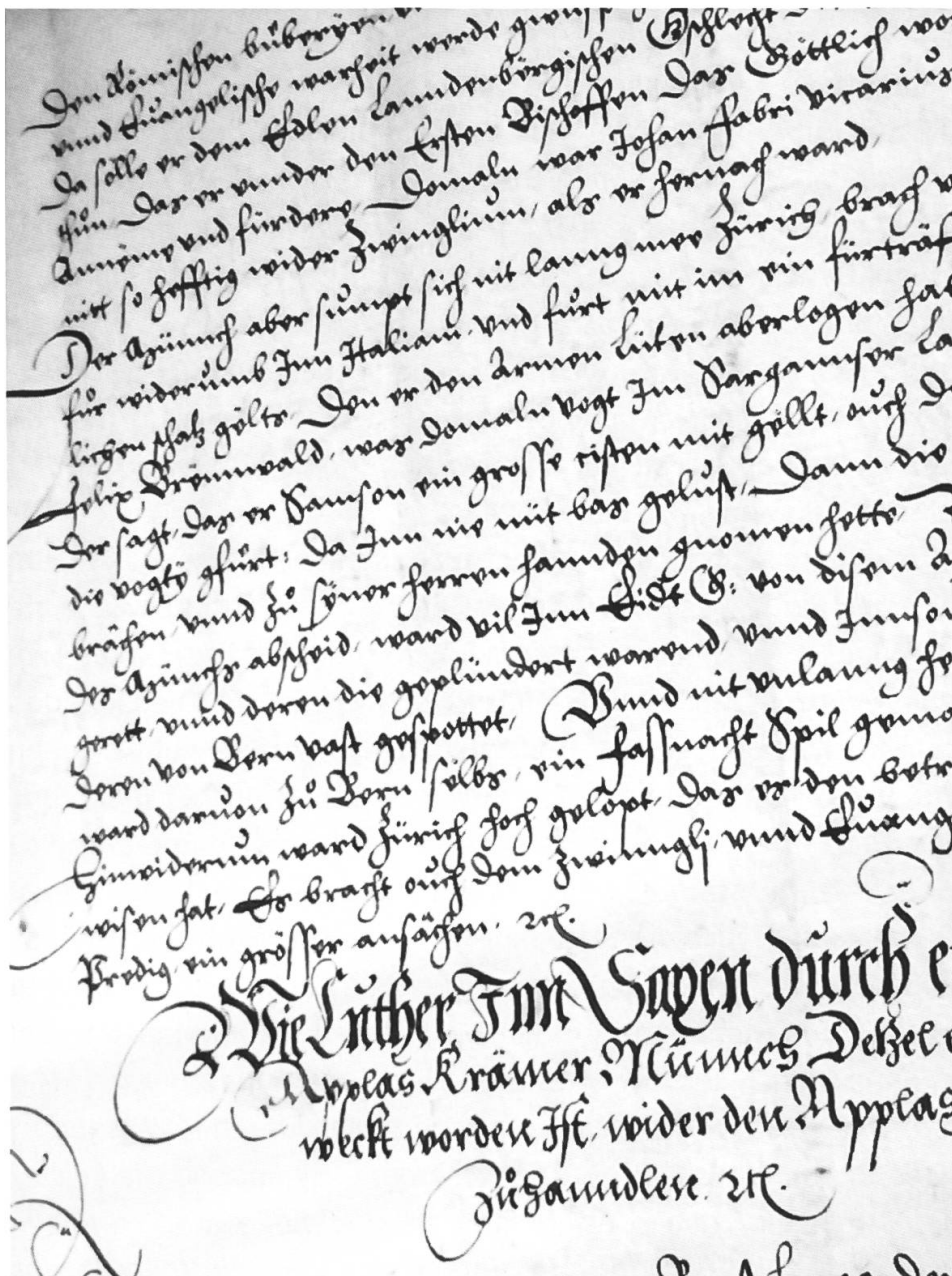 Den Römischen bůberyen
vnnd Euangelische warheit werde gwüss
Da sölle er dem Edlen Lanndenbërgischen Gschlecht
thůn Das er vnnder den Ersten Bischoffen Das Göttlich wo
Annëme vnd fürdere, Domaln war Johan Fabri vicarius
nitt so hefftig wider Zwinglium, als er hernach ward,
Der Münnch aber sumpt sich nit lanng mee Zürich, brach v
fůr widerumb Inn Italiam, vnd fůrt mit im ein fürträf
lichen schatz gëlts, Den er den Armen lüten aberlogen hat
Felix Brënnwald, was domaln vogt Im Sarganser La
Der sagt, Das er Samson ein grosse cisten mit gëllt, ouch D
die vogtÿ gfürt, Da Inn nie nüt bas gelust, Dann die
brächen, vnnd zů sÿner herren hannden gnomen hette,
Des Münchs abscheid, ward vil Inn Eidt G: von disem A
gerett, vnnd deren die geplündert warend, vnnd Innso
deren von Bern vast gespottet, Vnnd nit vnlanng he
ward daruon zů Bern sëlbs, ein fassnacht Spil gema
Hinwiderum ward Zürich hoch gelopt, das es den betr
wisen hat, Es bracht ouch dem Zwinngli, vnnd Euang
Predig, ein grösser ansächen, ꝛc.
Wie Luther, Inn Saxen durch e
Applas Krämer Münnch Detzel
weckt worden Ist, wider den Applas
Zůhanndlen. ꝛc.